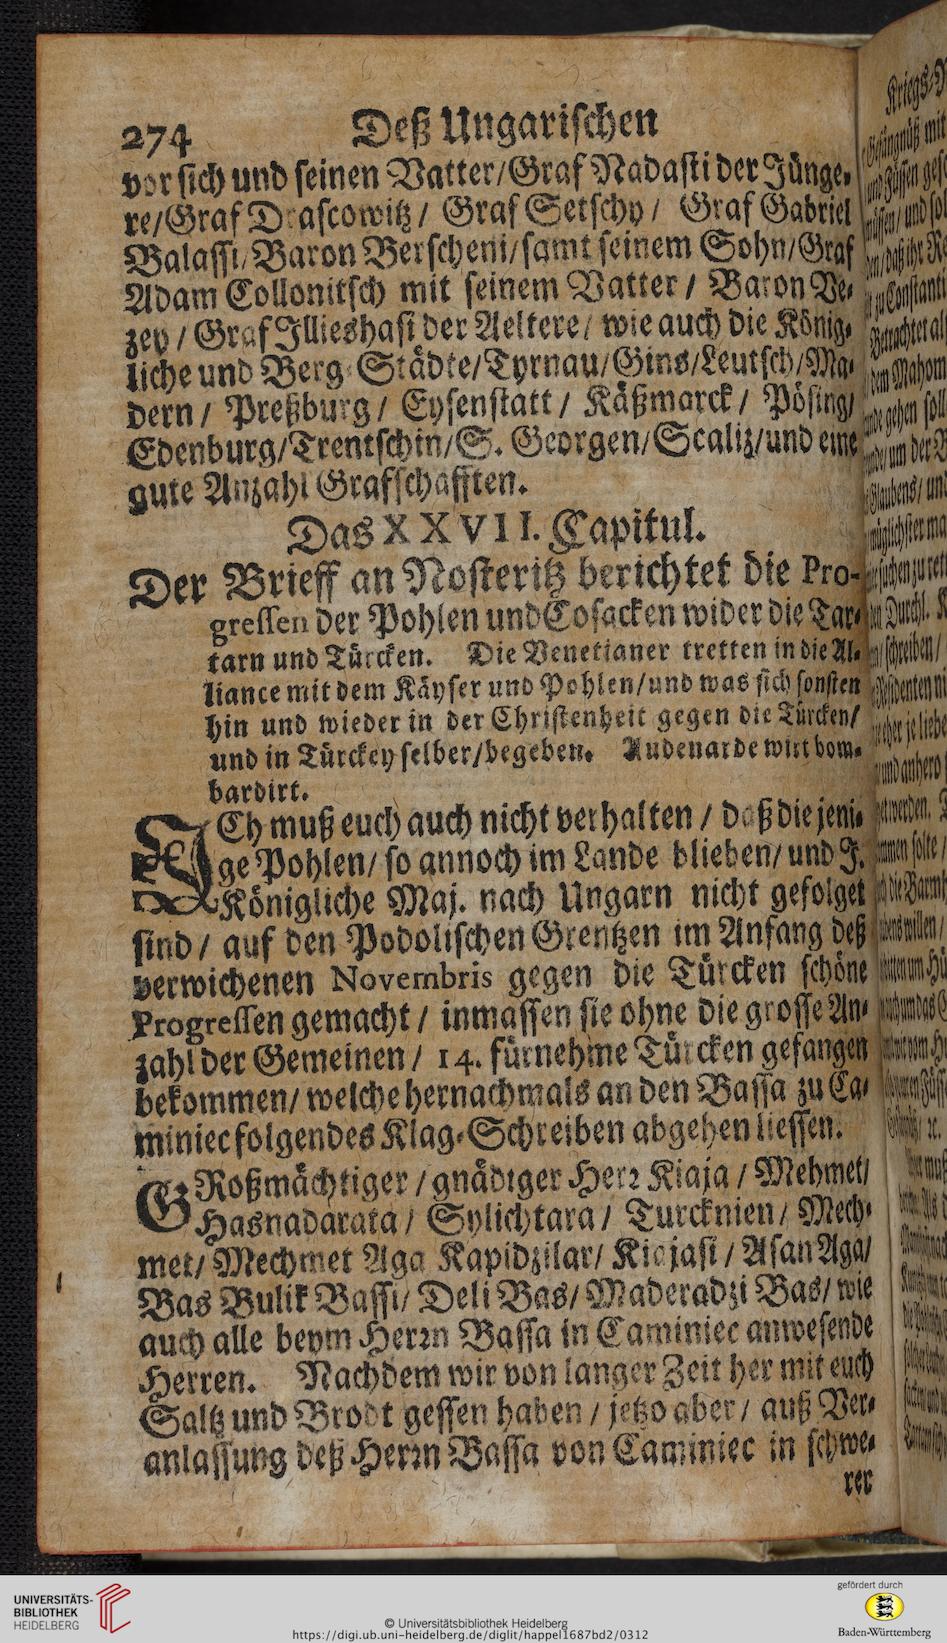 274 Deß Ungarischen
vor sich und seinen Vatter/Graf Nadasti der Jünge-
re/Graf Drascowitz/ Graf Setschy/ Graf Gabriel
Balassi/Baron Berscheni/samt seinem Sohn/Graf
Adam Collonitsch mit seinem Vatter / Baron Ve-
zey / Graf Illieshasi der Aeltere/ wie auch die König-
liche und Berg-Städte/Tyrnau/Gins/Leutsch/Ma-
dern / Preßburg / Eysenstatt / Käßmarck / Pösing/
Edenburg/Trentschin/S. Georgen/Scaliz/und eine
gute Anzahl Grafschafften.
Das XXVII. Capitul.
Der Brieff an Nosteritz berichtet die Pro-
gressen der Pohlen und Cosacken wider die Tar-
tarn und Türcken. Die Venetianer tretten in die Al-
liance mit dem Käyser und Pohlen/und was sich sonsten
hin und wieder in der Christenheit gegen die Türcken/
und in Türckey selber/begeben. Audenarde wirt bom-
bardirt.
ICh muß euch auch nicht verhalten / daß die jeni-
ge Pohlen/ so annoch im Lande blieben/ und J.
Königliche Maj. nach Ungarn nicht gefolget
sind / auf den Podolischen Grentzen im Anfang deß
verwichenen Novembris gegen die Türcken schöne
Progressen gemacht / inmassen sie ohne die grosse An-
zahl der Gemeinen / 14. fürnehme Türcken gefangen
bekommen/ welche hernachmals an den Bassa zu Ca-
miniec folgendes Klag-Schreiben abgehen liessen.
GRoßmächtiger / gnädiger Herr Kiaja / Mehmet/
Hasnadarata / Sylichtara / Turcknien / Mech-
met/ Mechmet Aga Kapidzilar/ Kiajasi / Asan Aga/
Bas Bulik Bassi/ Deli Bas/ Maderadzi Bas/ wie
auch alle beym Herrn Bassa in Caminiec anwesende
Herren. Nachdem wir von langer Zeit her mit euch
Saltz und Brodt gessen haben / jetzo aber / auß Ver-
anlassung deß Herrn Bassa von Caminiec in schwe-
rer
UNIVERSITÄTS-
BIBLIOTHEK
HEIDELBERG
© Universitätsbibliothek Heidelberg
https://digi.ub.uni-heidelberg.de/diglit/happel1687bd2/0312
gefördert durch
Baden-Württemberg